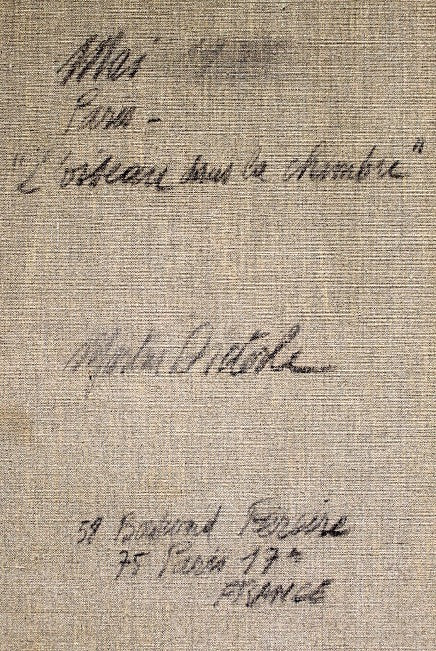 Mai
Paris -
"L'oiseau dans la chambre"
Dieterle
59 Boulevard Pereire
75 Paris 17e
FRANCE